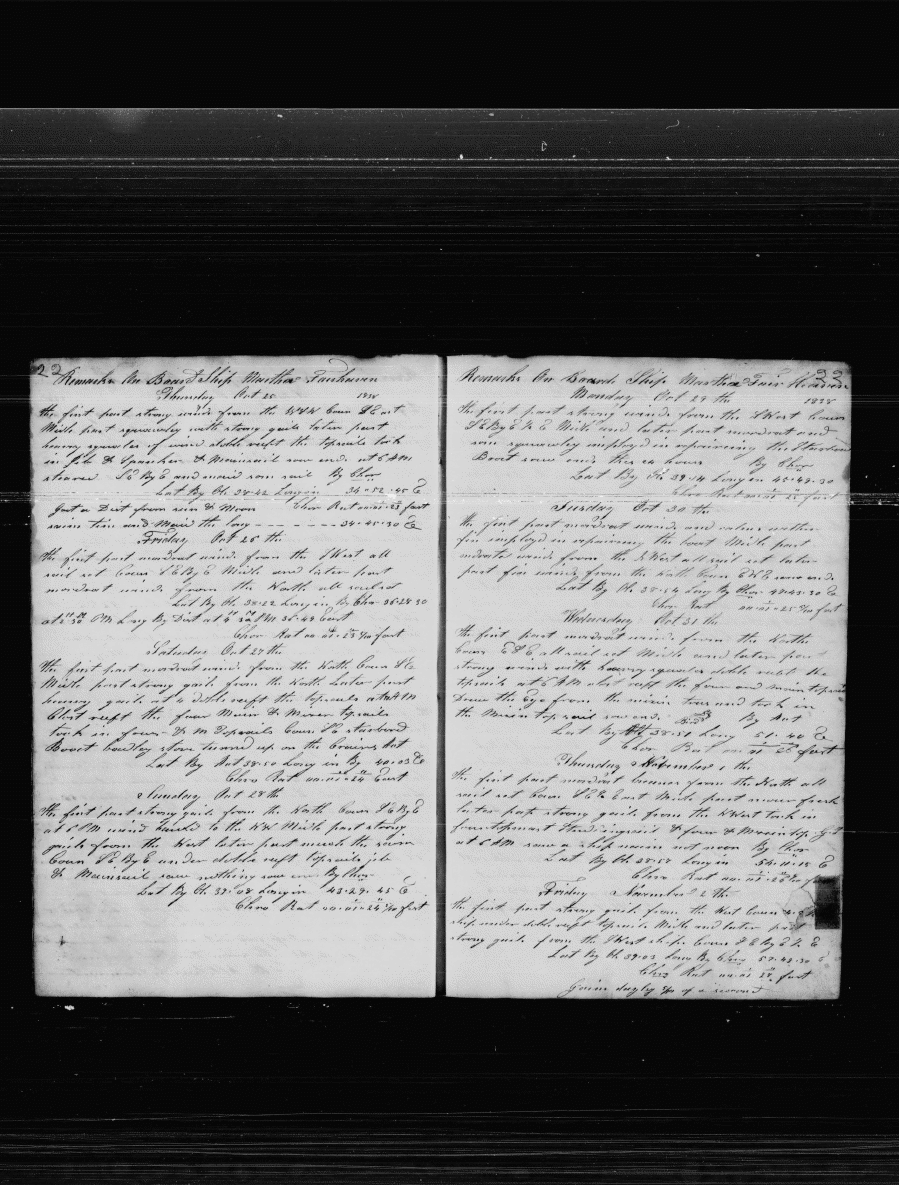 22
Remarks On Board Ship Martha Fairhaven
Thursday Oct 25 1838
the first part strong winds from the WNW Cours S East
Midle part squawly with strong gails later part
heavey squales of wind doble reeft the topsails took
in jib & Spanker & Mainsail so ends at 6 AM
steared SE By E and maid som sail By Chro
Lat By Ob 38-42 Long in 34-52-45 E
got a Dist from sun & Moon Chro Rat 00-01-23 fast
main tim and Maid the Long - - - - - - - - 34-45-30 E
Friday Oct 26 th
the first part modrat winds from the SWest all
sail set Cours SE By E Midle and later part
modrat winds from the North all sail set
Lat By Ob 38-22 Long in By Chro 36-28 30
at 2 30 PM Long By Dist at 4 PM 36-49 East
Chro Rat 00 01-23 fast
Saturday Oct 27 th
the first part modrat winds from the North Cours SE
Midle part strong gails from the North Later part
heavey gails at 4 doble reeft the topsails at AM
Clost reeft the four Main & Mizen topsails
took in four & M Topsails Cours SE starbord
Booat badley stove turned up on the Crains Rat
Lat By Rat 38-50 Long in By 40-03 E
Chro Rat 00-01-24 East
Sunday Oct 28 th
the first part strong gails from the North Cours SE By E
at 6 PM wind hauled to the NW Midle part strong
gails from the West later part much the same
Cours SE By E under doble reeft topsails jib
& Mainsail saw nothing so ends By Chro
Lat By Ob 39-08 Long in 43-29-45 E
Chro Rat 00-01-24 fast
23
Remarks On Board Ship Martha Fair Haven
Monday Oct 29 th 1838
the first part strong winds from the SWest Cours
SE By E ½ E Midle and later part modrat and
sun squawley imployd in repairing the Starbord
Booat so ends thes 24 hours By Chro
Lat By Ob 39-14 Long in 45-49-30
Chro Rat 00 01 25 fast
Tuesday Oct 30 th
the first part modrat winds and calm wether
fin imployd in repairing the boat Midle part
modrate winds from the SWest all sail set later
part fin winds from the North Cours E so ends
Lat By Ob 38-54 Long By Chro 48-43-30 E
Chro Rat 00-01-25 fast
Wednesday Oct 31 th
the first part modrat winds from the North
Cours E all sail set Midle and later part
strong winds with heavey squales doble reeft the
topsails at 6 AM clost reeft the four and main topsail
Drew the Eye from the mizen tow and took in
the Mizen topsail so ends By Rat
Lat By 38-51 Long 51-40 E
Chro Rat 00 01 26 fast
Thursday November 1 th
the first part modrat breezes from the North all
sail set Cours East Midle part more fresh
later part strong gails from the NWest took in
foretopmast studingsail & four & Main top
at 6 AM saw a ship so ends By Chro
Lat By Ob 38-57 Long in 54-11-15 E
Chro Rat 00-01-26 fast
Friday November 2 th
the first part strong gails from the West Cours
ship under doble reeft topsails Midle and later part
strong gails from the SWest Cours SE By E ½ E
Lat By Ob 39-03 Long By Chro 57-49-30 E
Chro Rat 00-01 27 fast
of a second